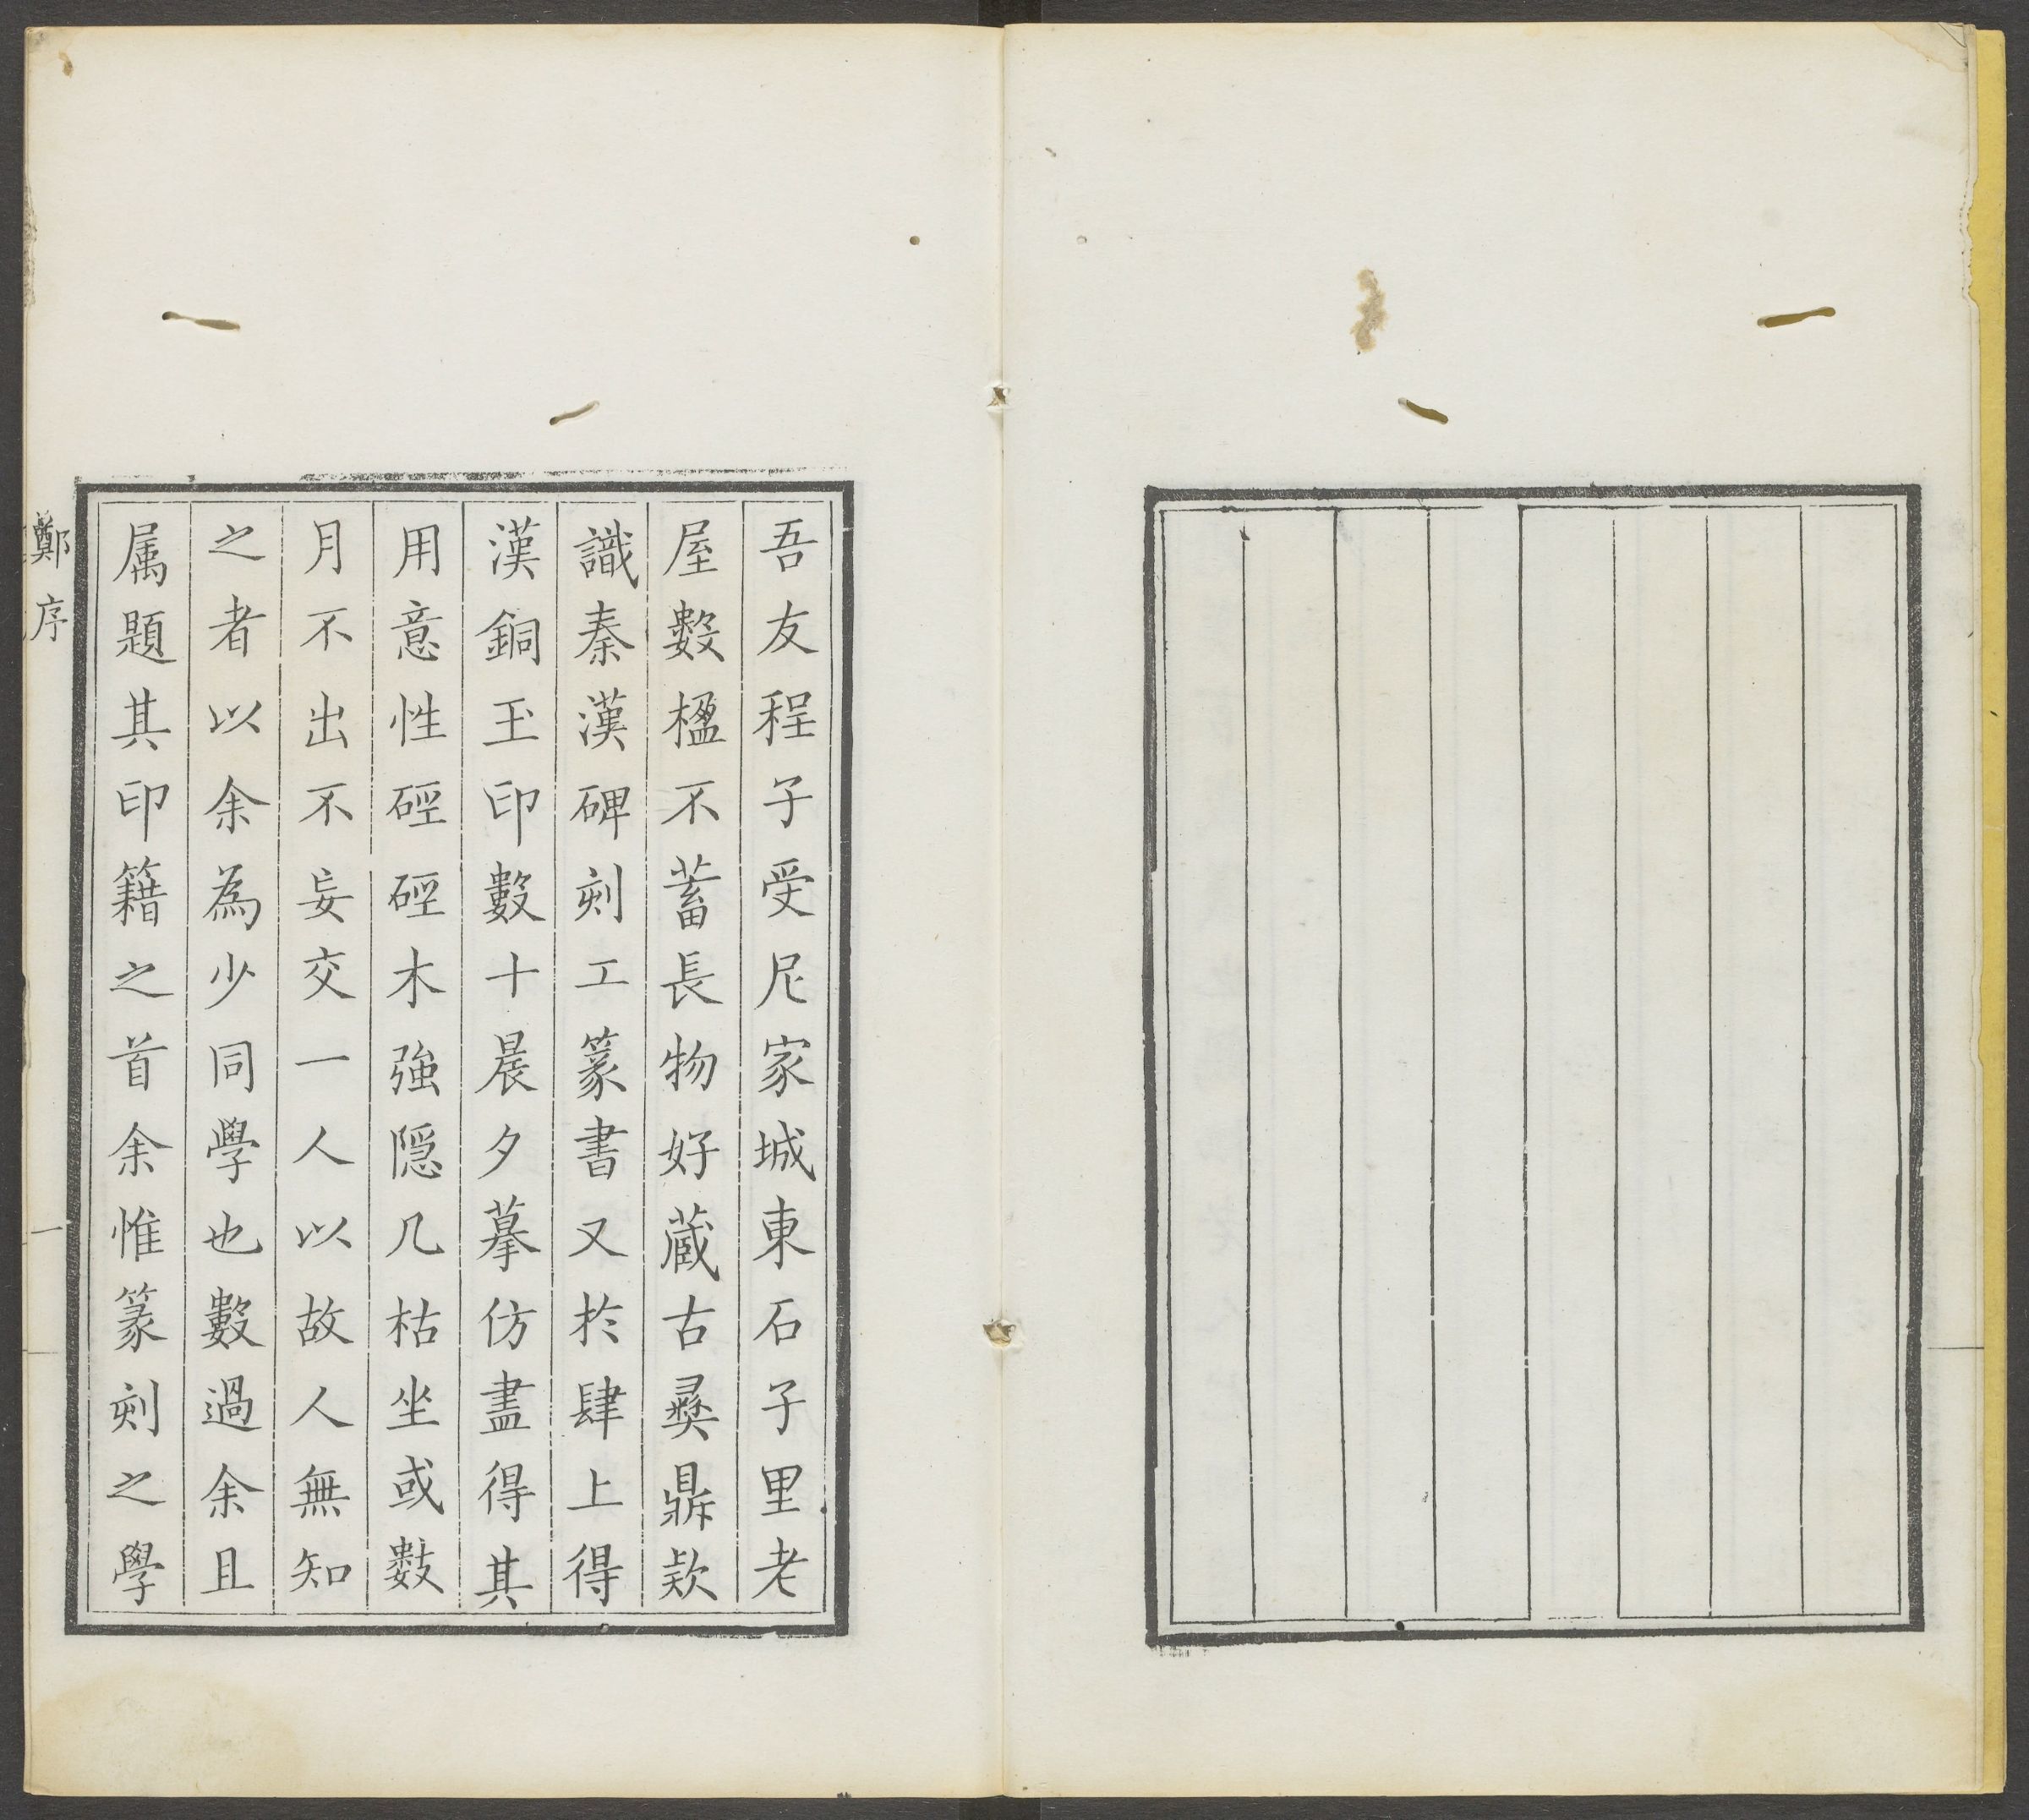 吾友程子受尼家城東石子里老
屋數楹不蓄長物好蔵古彛鼎欵
識秦漢碑刻工篆書又扵肆上得
漢銅玉印數十晨夕摹仿盡得其
用意性硜硜木強隠几枯坐或数
月不出不妄交一人以故人無知
之者以余為少同學也數過余且
属題其印籍之首余惟篆刻之學
鄭序
一